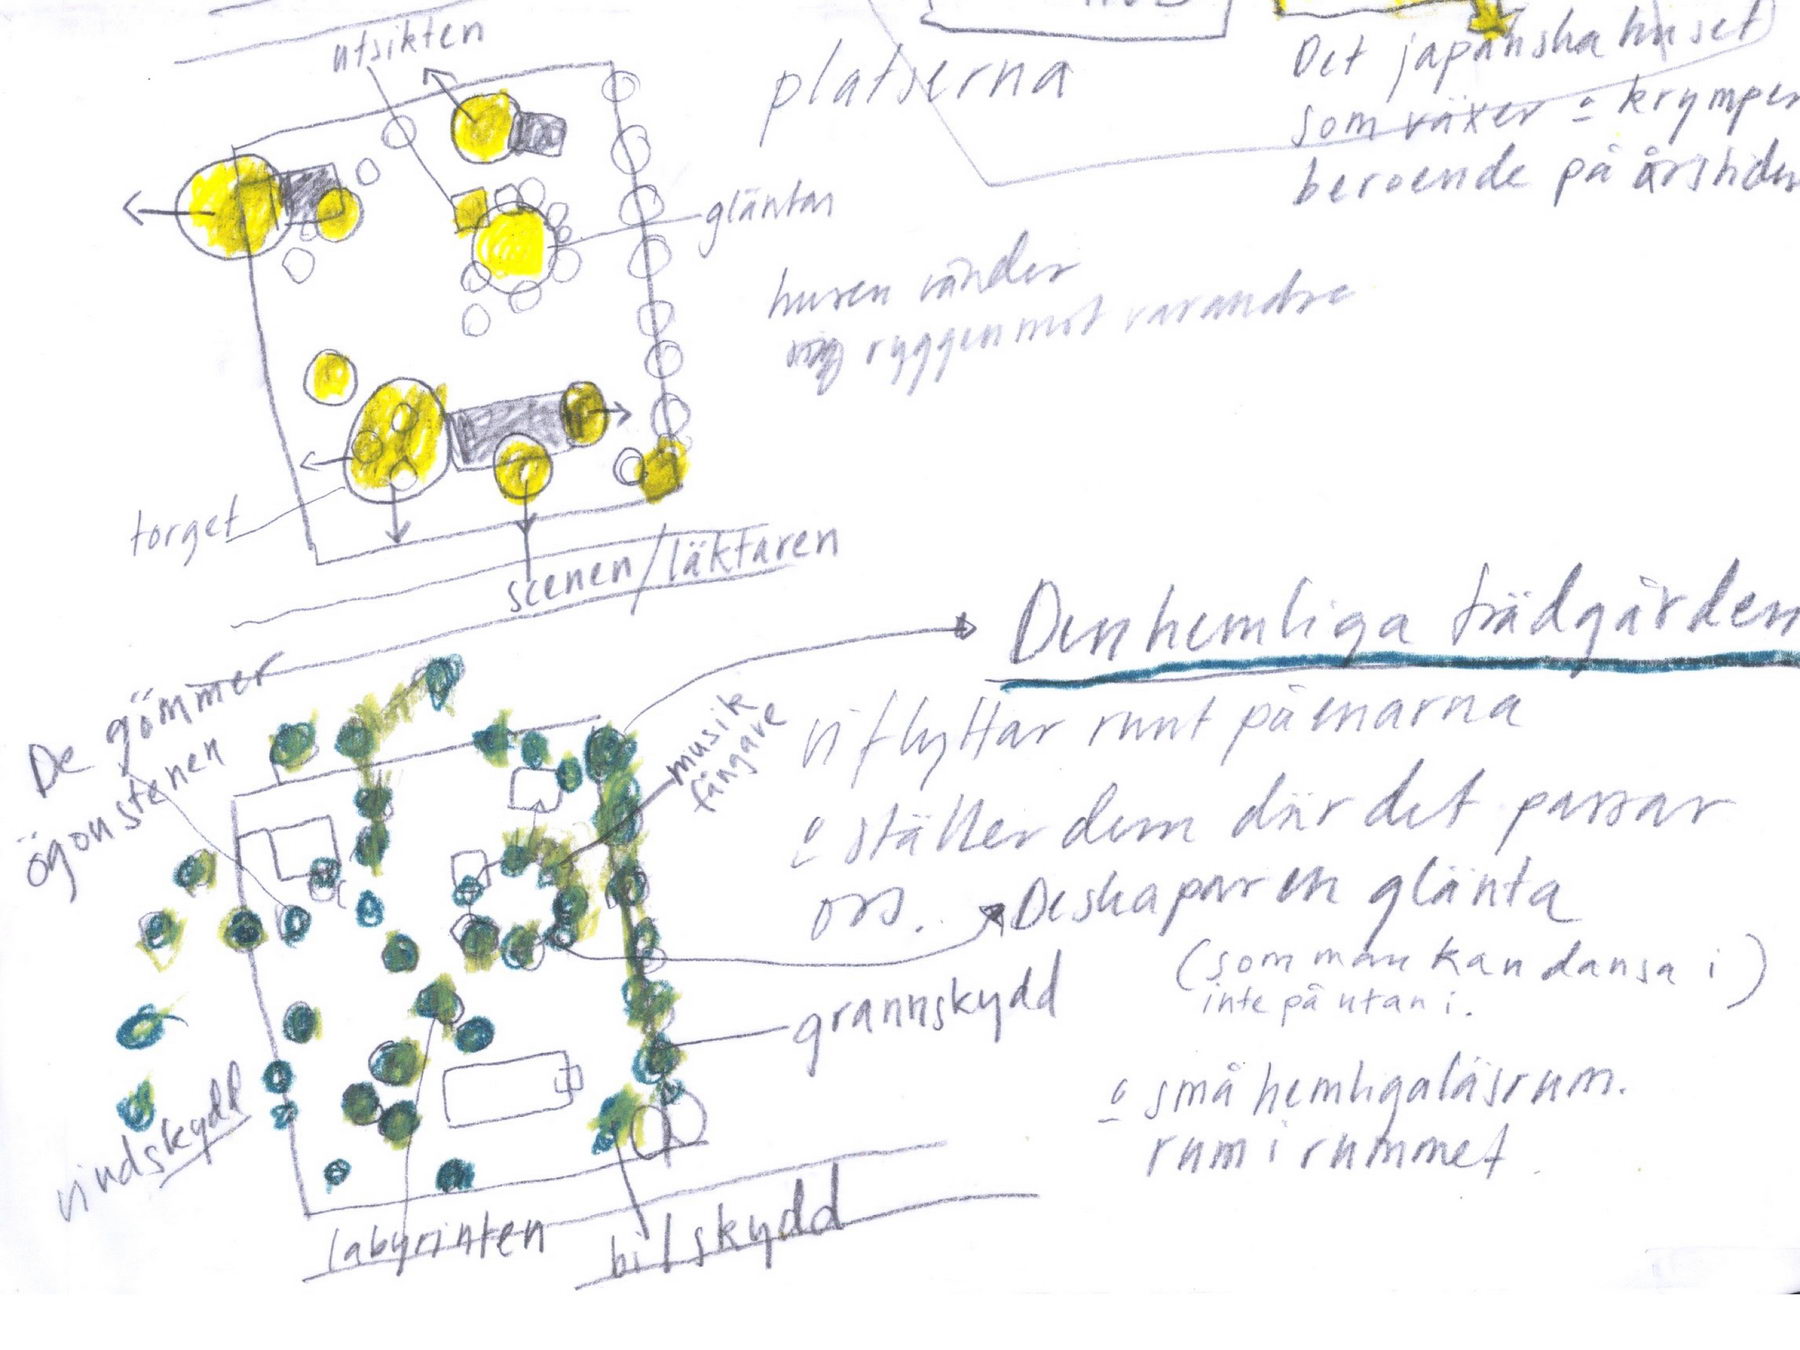 utsikten
platserna
Det japanska huset
som växer o krymper
beroende på årstiden
gläntan
husen vänder
ryggen mot varandra
torget
scenen/läktaren
Den hemliga trädgården
De gömmer
ögonstenen
musik
fångare
vi flyttar runt på enarna
o ställer dem där det passar
oss.
De skapar en glänta
(som man kan dansa i)
inte på utan i.
grannskydd
vindskydd
o små hemliga läsrum.
rum i rummet.
labyrinten
bilskydd